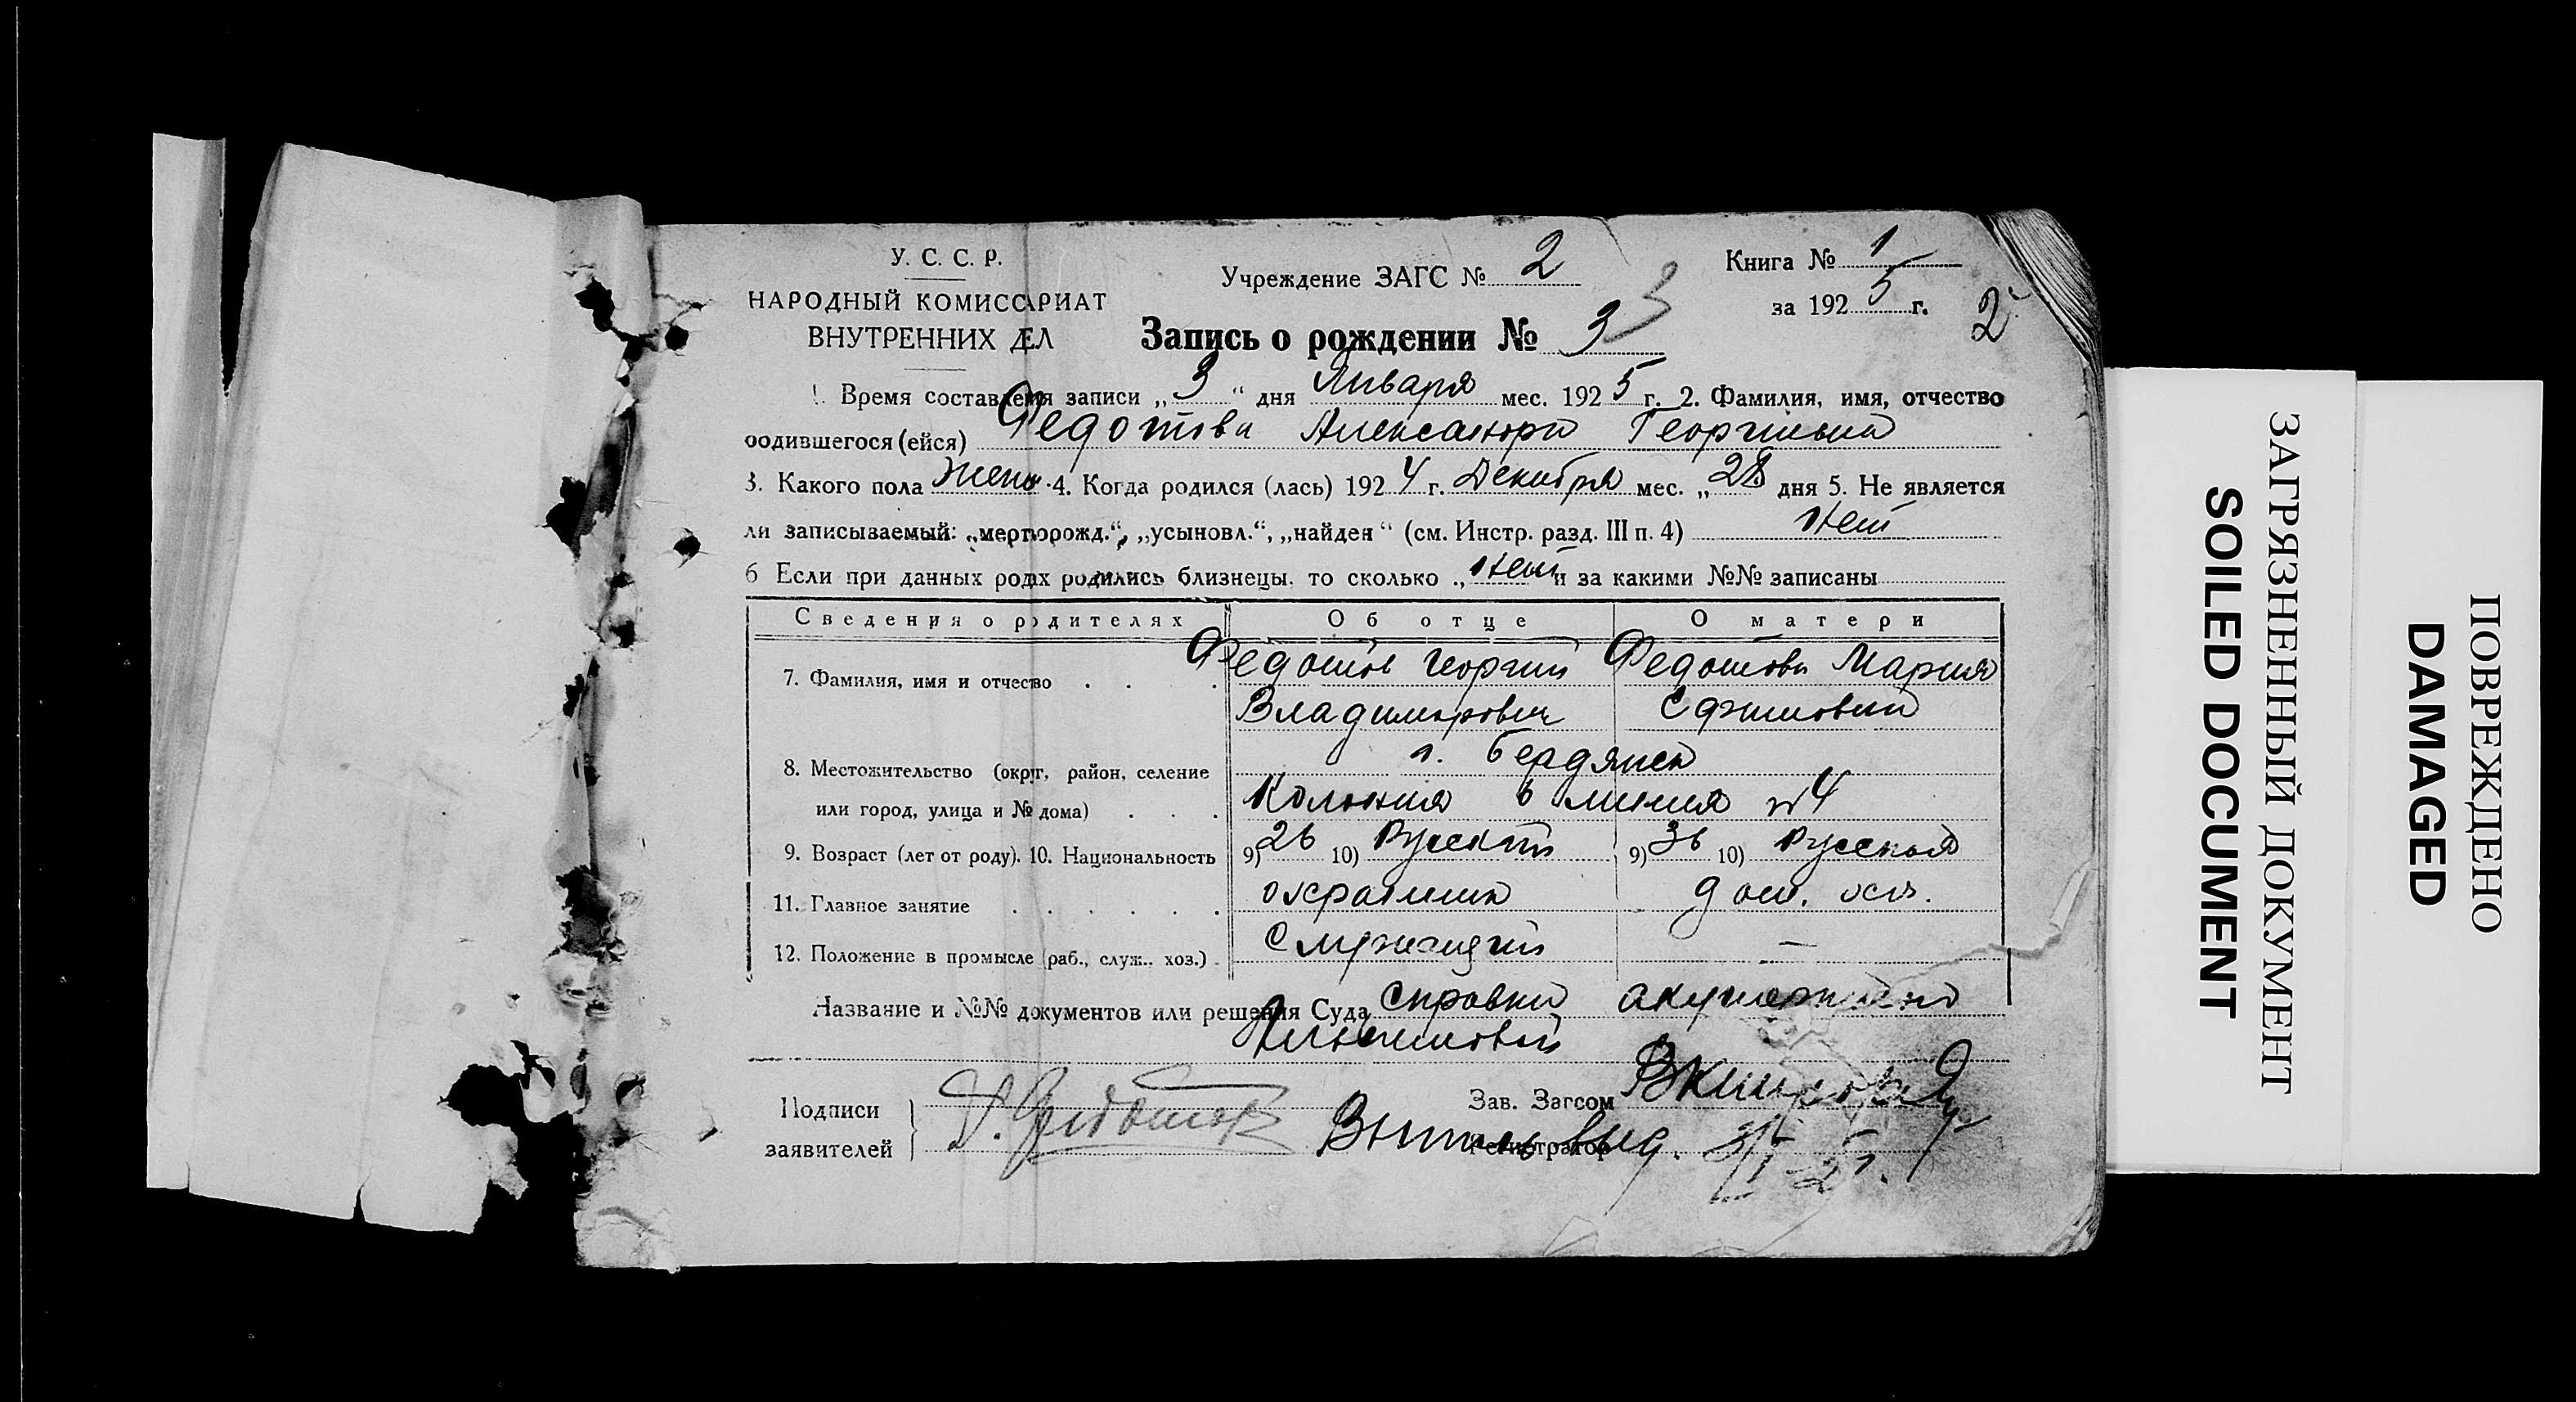 У. С. С. Р.
НАРОДНЫЙ КОМИССАРИАТ
ВНУТРЕННИХ ДЕЛ
Учреждение ЗАГС № 2
Книга № 1
за 1925 г.
2
3
Запись о рождении № 3
1. Время составления записи „3“ дня Января мес. 1925 г. 2. Фамилия, имя, отчество
родившегося (ейся) Федотова Александра Георгиевна
3. Какого пола жен. 4. Когда родился (лась) 1924 г. Декабря мес. „28 дня 5. Не является
ли записываемый: „мерторожд.“, „усыновл.“, „найден“ (см. Инстр. разд. III п. 4) нет
6 Если при данных родах родились близнецы, то сколько „нет и за какими №№ записаны
Сведения о родителях Об отце О матери
7. Фамилия, имя и отчество Федотов Георгий Федотова Мария
Владимирович
8. Местожительство (округ, район, селение г. Бердянск
или город, улица и № дома) Колония 6 линия № 4
9. Возраст (лет от роду). 10. Национальность 9) 26 10) Русский 9) 36 10) Русская
11. Главное занятие охранник дом. хоз.
12. Положение в промысле (раб., служ., хоз.) Служащий —
Название и №№ документов или решения Суда Справка акушерки
Подписи
заявителей
Федотов
Зав. Загсом
Выпись выд.
Регистратор
ЗАГРЯЗНЕННЫЙ ДОКУМЕНТ
SOILED DOCUMENT
ПОВРЕЖДЕНО
DAMAGED